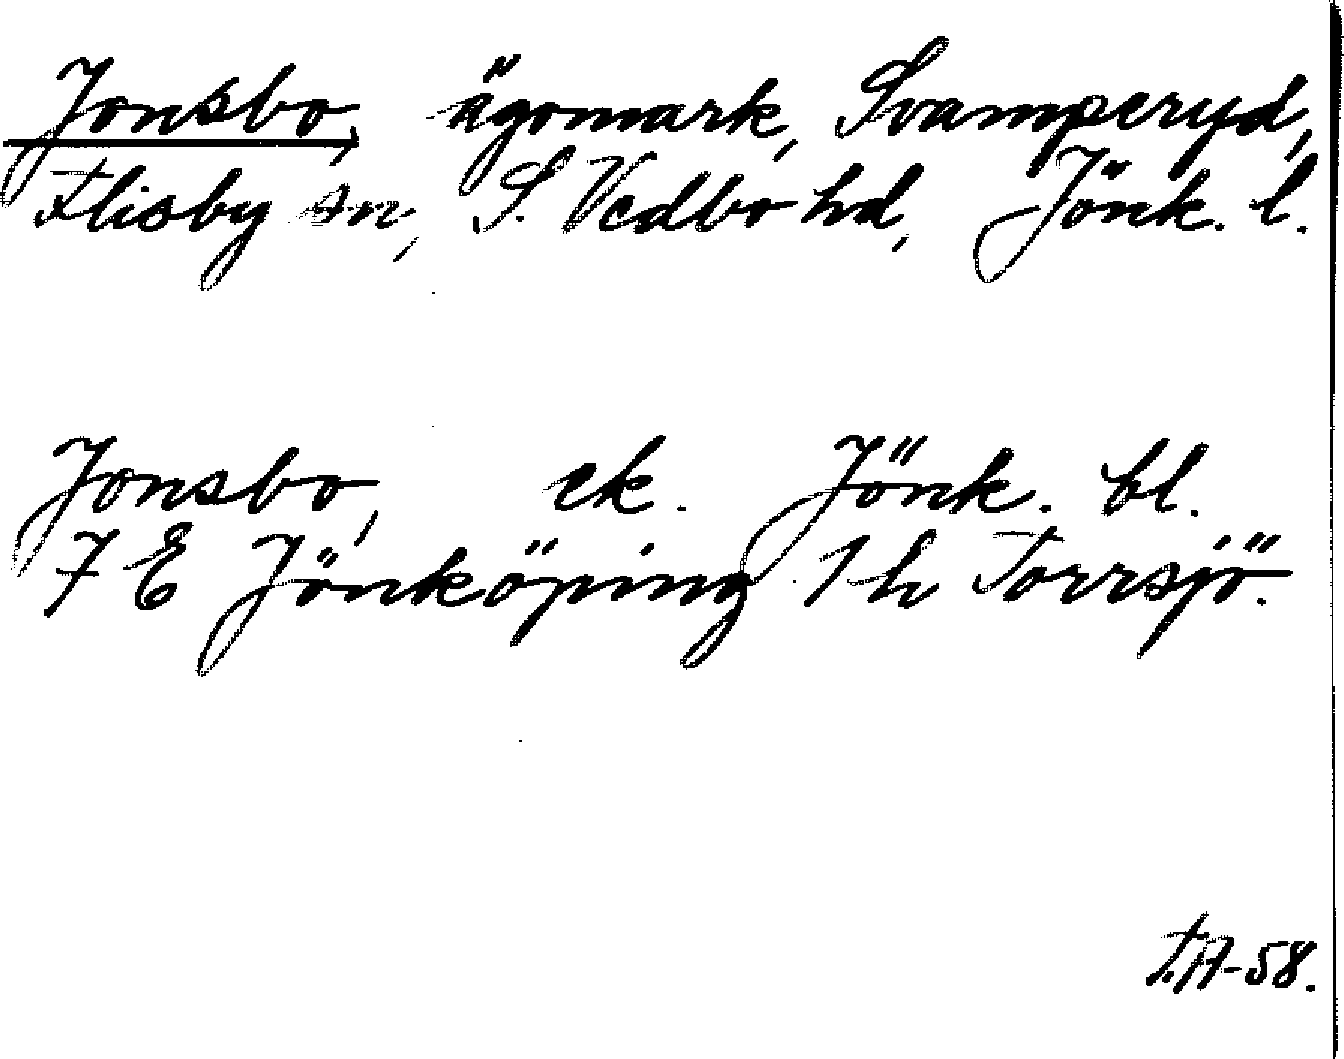 Jonsbo, ägomark, Svamperyd,
Flisby sn, S. Vedbo hd, Jönk. l.
Jonsbo, ek. Jönk. bl.
7 E Jönköping 1 h Torrsjö.
T.A-58.